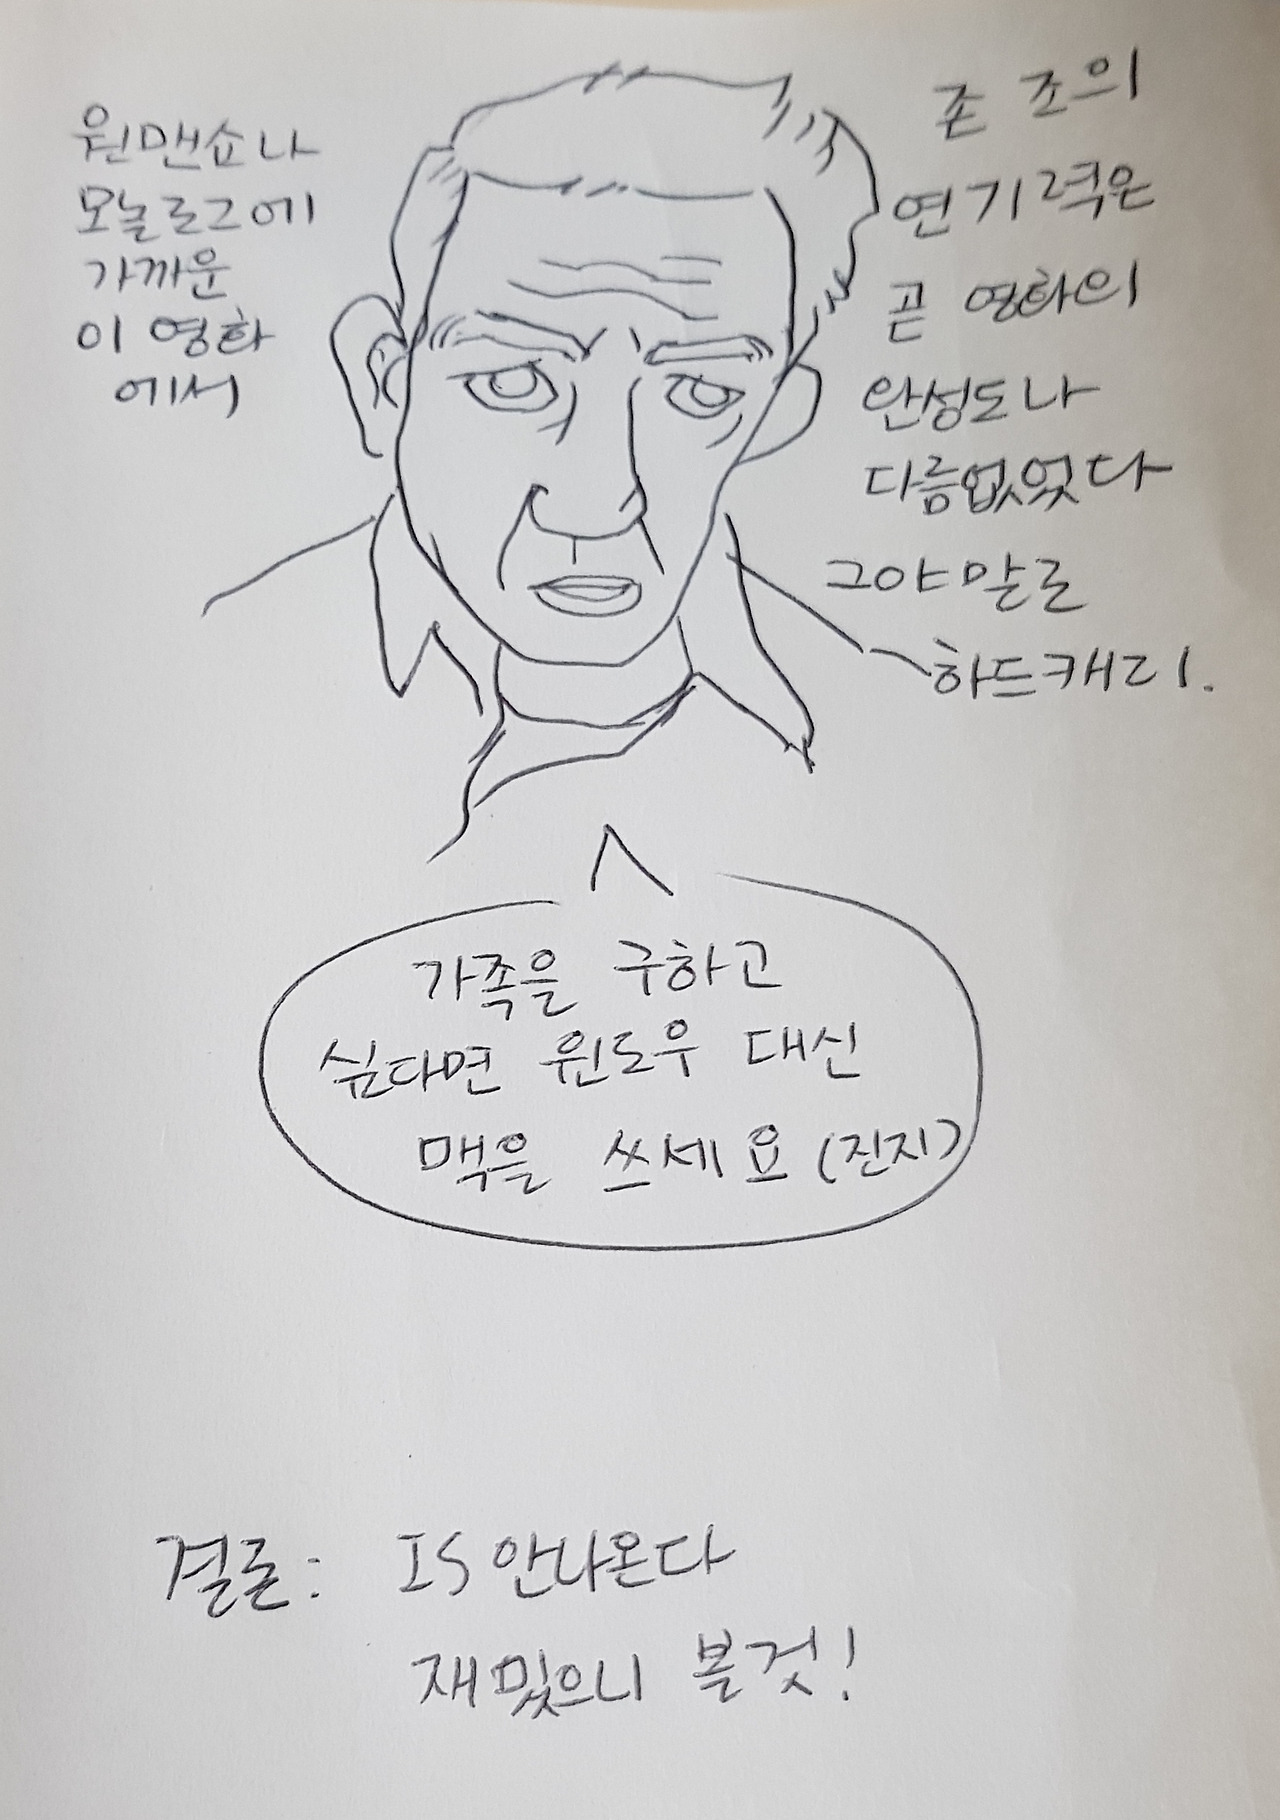 원맨쇼나
모놀로그에
가까운
이 영화
에서
존 조의
연기력은
곧 영화의
완성도나
다름없었다
그야말로
하드캐리.
가족을 구하고
싶다면 윈도우 대신
맥을 쓰세요 (진지)
결론: IS안나온다
재밌으니 볼것!